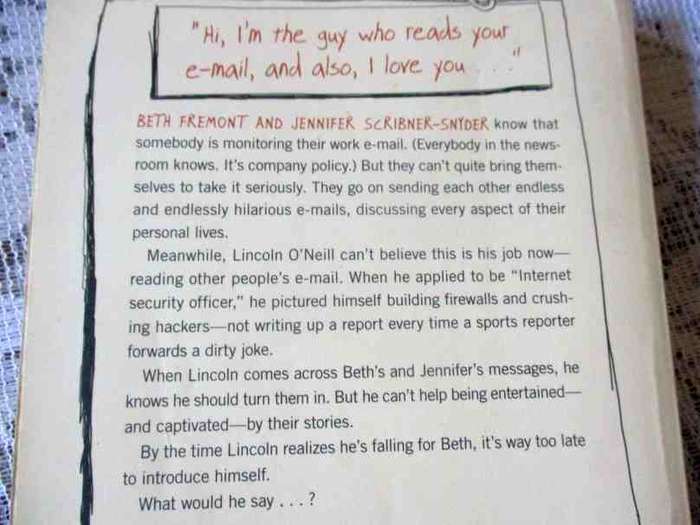 "Hi, I'm the guy who reads your
e-mail, and also, I love you . . ."
BETH FREMONT AND JENNIFER SCRIBNER-SNYDER know that
somebody is monitoring their work e-mail. (Everybody in the news-
room knows. It's company policy.) But they can't quite bring them-
selves to take it seriously. They go on sending each other endless
and endlessly hilarious e-mails, discussing every aspect of their
personal lives.
Meanwhile, Lincoln O'Neill can't believe this is his job now—
reading other people's e-mail. When he applied to be "Internet
security officer," he pictured himself building firewalls and crush-
ing hackers—not writing up a report every time a sports reporter
forwards a dirty joke.
When Lincoln comes across Beth's and Jennifer's messages, he
knows he should turn them in. But he can't help being entertained—
and captivated—by their stories.
By the time Lincoln realizes he's falling for Beth, it's way too late
to introduce himself.
What would he say . . . ?